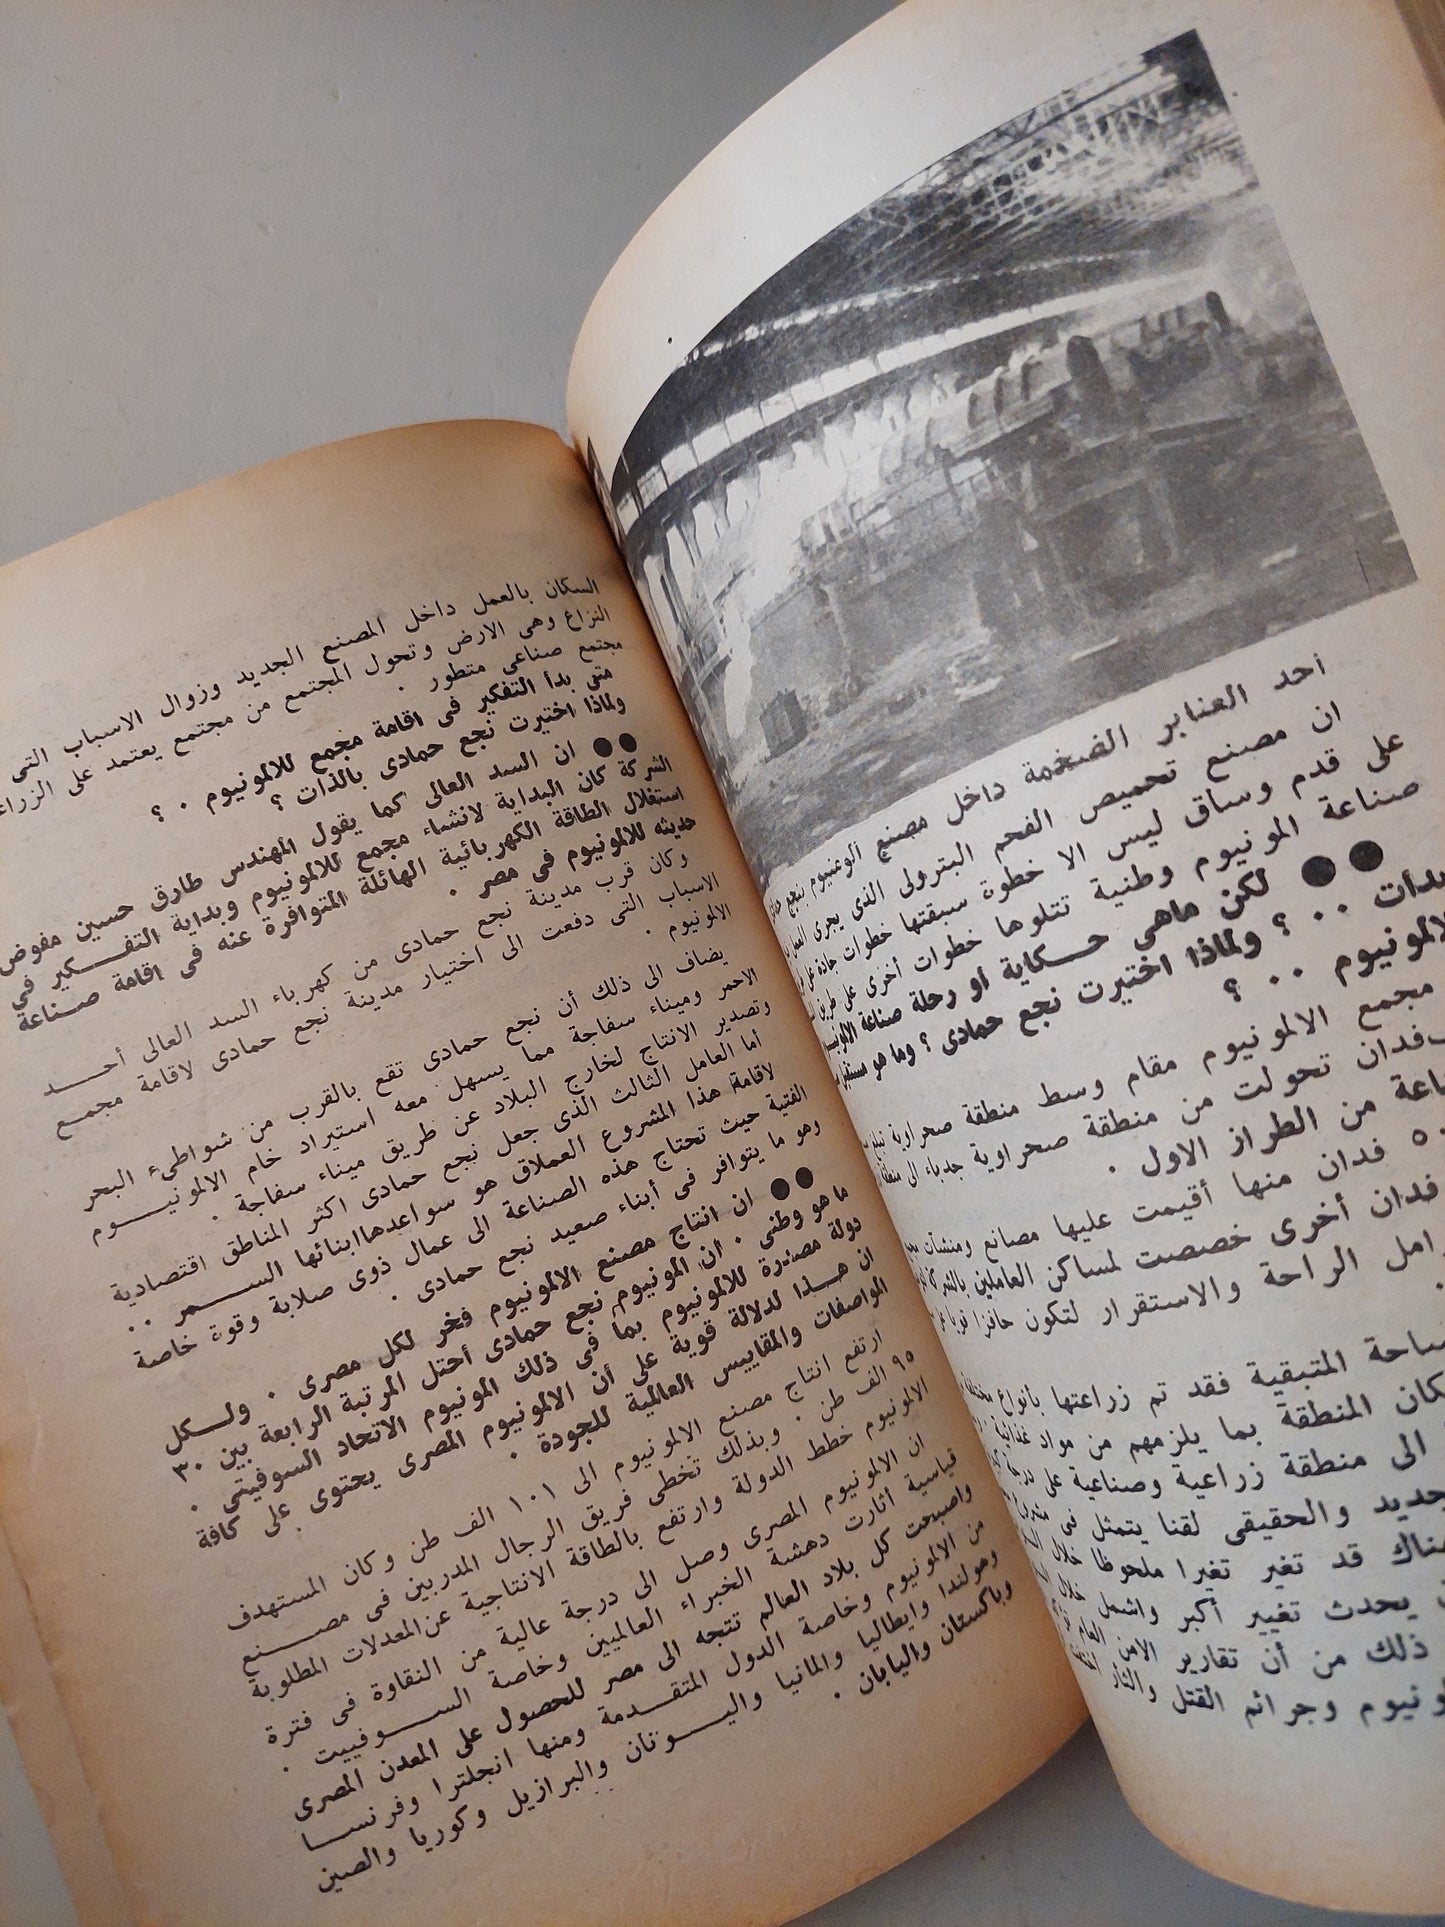 أحد العنابر الضخمة داخل مصنع
ان مصنع تحميص الفحم البترولى الذى يجرى العمل
على قدم وساق ليس الا خطوة سبقتها خطوات جادة على
صناعة المونيوم وطنية تتلوها خطوات أخرى على طريق
●● لكن ماهى حـــكاية أو رحلة صناعة
بدأت ٠٠ ؟ ولماذا اختيرت نجع حمادى ؟ وما هو
٠٠ ؟
مجمع الالمونيوم مقام وسط منطقة صحراوية
فدان تحولت من منطقة صحراوية جدباء الى
من الطراز الاول ٠
فدان منها أقيمت عليها مصانع ومنشآت
فدان أخرى خصصت لمساكن العاملين بالشركة
الراحة والاستقرار لتكون حافزا قويا
المتبقية فقد تم زراعتها بأنواع مختلفة
المنطقة بما يلزمهم من مواد غذائية
الى منطقة زراعية وصناعية على درجة
والحقيقى لقنا يتمثل فى
قد تغير تغيرا ملحوظا خلال
يحدث تغيير أكبر واشمل خلال
ذلك من أن تقارير الامن العام
وجرائم القتل والثأر
السكان بالعمل داخل المصنع الجديد وزوال الاسباب التى
النزاع وهى الارض وتحول المجتمع من مجتمع يعتمد على
مجتمع صناعى متطور ٠
متى بدأ التفكير فى اقامة مجمع للالمونيوم ٠ ؟
ولماذا اختيرت نجع حمادى بالذات ؟
●● ان السد العالى كما يقول المهندس طارق حسين مفوض
الشركة كان البداية لانشاء مجمع للالمونيوم وبداية التفـــكير في
استغلال الطاقة الكهربائية الهائلة المتوافرة عنه فى اقامة صــناعة
حديثه للالمونيوم فى مصر ٠
وكان قرب مدينة نجع حمادى من كهرباء السد العالى أحـــد
الاسباب التى دفعت الى اختيار مدينة نجع حمادى لاقامة مجمــع
الالمونيوم ٠
يضاف الى ذلك أن نجع حمادى تقع بالقرب من شواطىء البحر
الاحمر وميناء سفاجة مما يسهل معه استيراد خام الالمونيـــوم
وتصدير الانتاج لخارج البلاد عن طريق ميناء سفاجة ٠
أما العامل الثالث الذى جعل نجع حمادى اكثر المناطق اقتصادية
لاقامة هذا المشروع العملاق هو سواعدهاابنائها الســـمر ٠٠
الفتية حيث تحتاج هذه الصناعة الى عمال ذوى صلابة وقوة خاصة
وهو ما يتوافر فى أبناء صعيد نجع حمادى ٠
●● ان انتاج مصنع الالمونيوم فخر لكل مصرى ٠ ولـــكل
ما هو وطنى ٠ ان المونيوم نجع حمادى أحتل المرتبة الرابعة بين ٣٠
دولة مصدرة للالمونيوم بما فى ذلك المونيوم الاتحاد السوفيتى ٠
ان هـــذا لدلالة قوية على أن الالمونيوم المصرى يحتوى على كافة
المواصفات والمقاييس العالمية للجودة ٠
ارتفع انتاج مصنع الالمونيوم الى ١٠١ الف طن وكان المستهدف
٩٥ الف طن ٠ وبذلك تخطى فريق الرجال المدربين فى مصـــنع
الالمونيوم خطط الدولة وارتفع بالطاقة الانتاجية عن المعدلات المطلوبة
ان الالمونيوم المصرى وصل الى درجة عالية من النقاوة فى فترة
قياسية أثارت دهشة الخبراء العالميين وخاصة الســـوفييت ٠
واصبحت كل بلاد العالم تتجه الى مصر للحصول على المعدن المصرى
من الالمونيوم وخاصة الدول المتقـــدمة ومنها انجلترا وفرنســـا
وهولندا وايطاليا والمانيا واليـــونان والبرازيل وكوريا والصين
وباكستان واليابان ٠